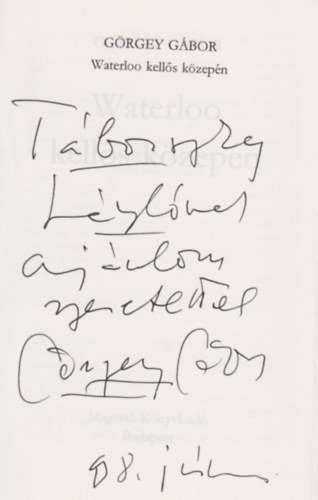 GÖRGEY GÁBOR
Waterloo kellős közepén
Waterloo
kellős közepén
Táborszky
Lászlónak
ajánlom
szeretettel
Görgey Gábor
Magvető Könyvkiadó
Budapest
88. jún.